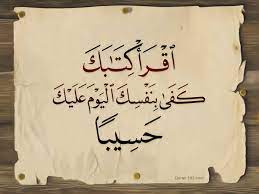 ٱقۡرَأۡ كِتَٰبَكَ
كَفَىٰ بِنَفۡسِكَ ٱلۡيَوۡمَ عَلَيۡكَ
حَسِيبًا